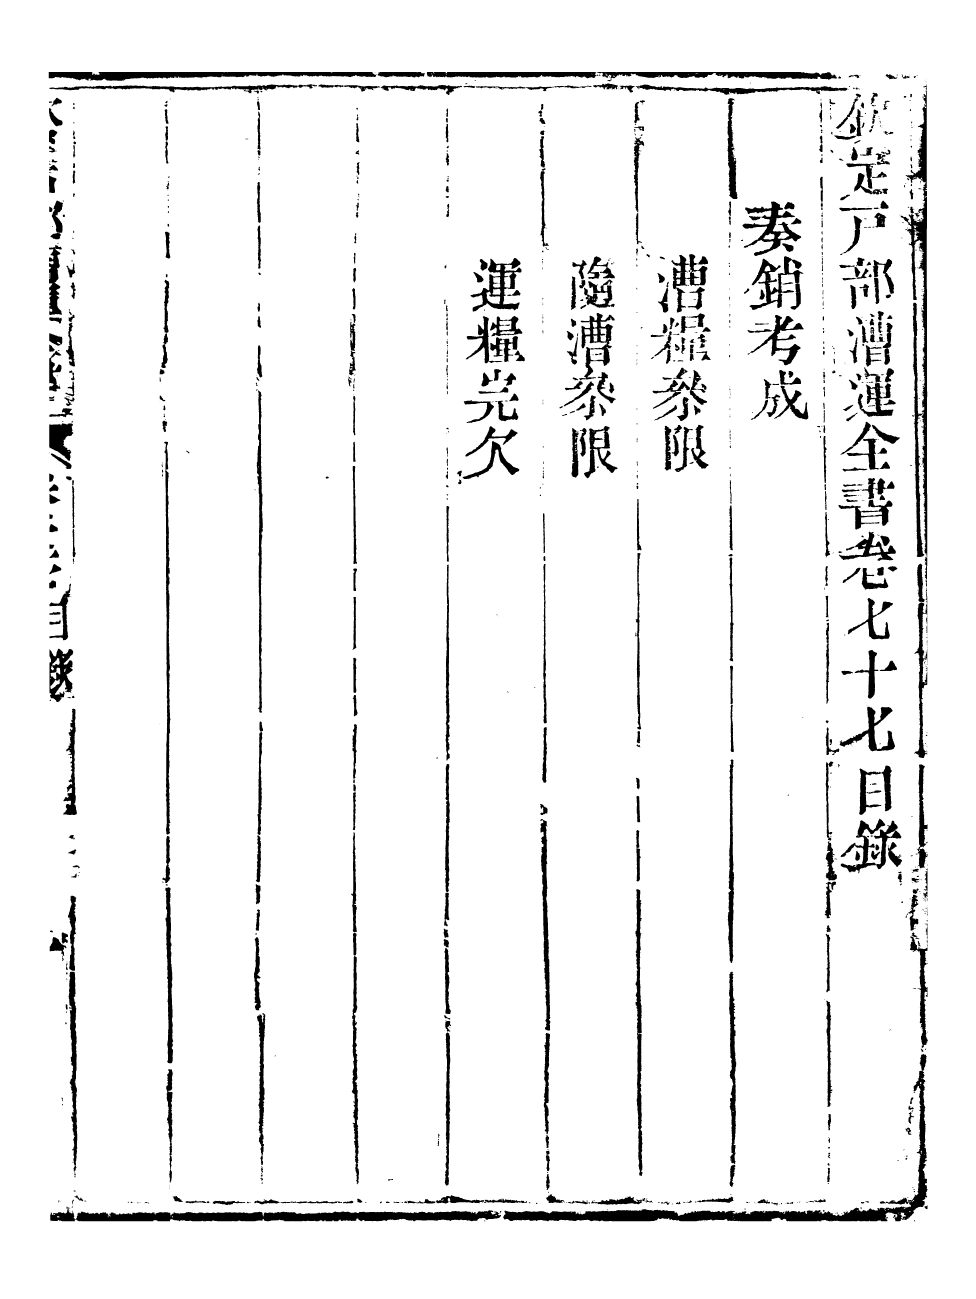 欽定戸部漕運全書卷七十七目錄
奏銷考成
漕糧叅限
隨漕叅限
運糧完欠
目錄